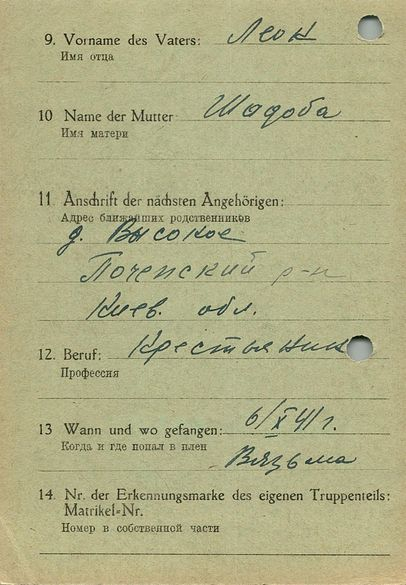 9. Vorname des Vaters: Леон
Имя отца
10 Name der Mutter Шадоба
Имя матери
11. Anschrift der nächsten Angehörigen:
Адрес ближайших родственников
д. Высокое
Поченский р-н
Киев. обл.
12. Beruf: Крестьянин
Профессия
13 Wann und wo gefangen: 6/X 41 г.
Когда и где попал в плен
Вязьма
14. Nr. der Erkennungsmarke des eigenen Truppenteils:
Matrikel-Nr.
Номер в собственной части